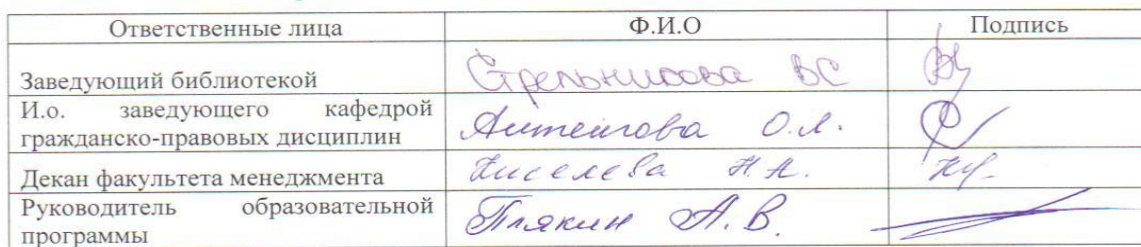 Ответственные лица Ф.И.О Подпись
Заведующий библиотекой Стрельникова ВС
И.о. заведующего кафедрой
гражданско-правовых дисциплин О.А.
Декан факультета менеджмента Киселева Н.А.
Руководитель образовательной
программы Плякин А.В.